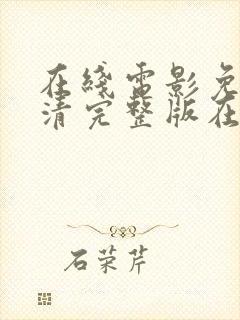 在綫電影免
清完整版在
石荣芹